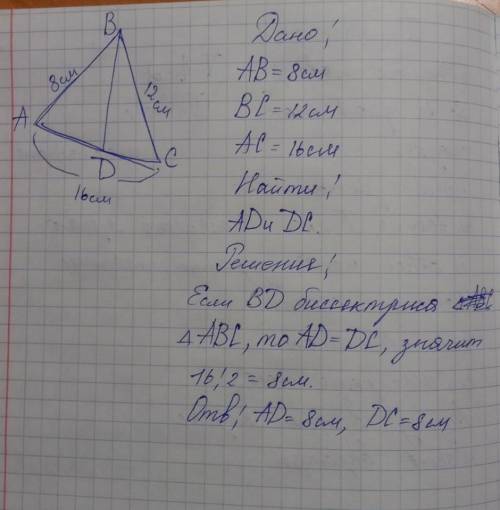 B
8см
12см
A
D
C
16см
Дано!
AB = 8см
BC = 12см
AC = 16см
Найти!
AD и DC.
Решения!
Если BD биссектриса
△ ABC, то AD = DC, значит
16 : 2 = 8см.
Отв! AD = 8см, DC = 8см